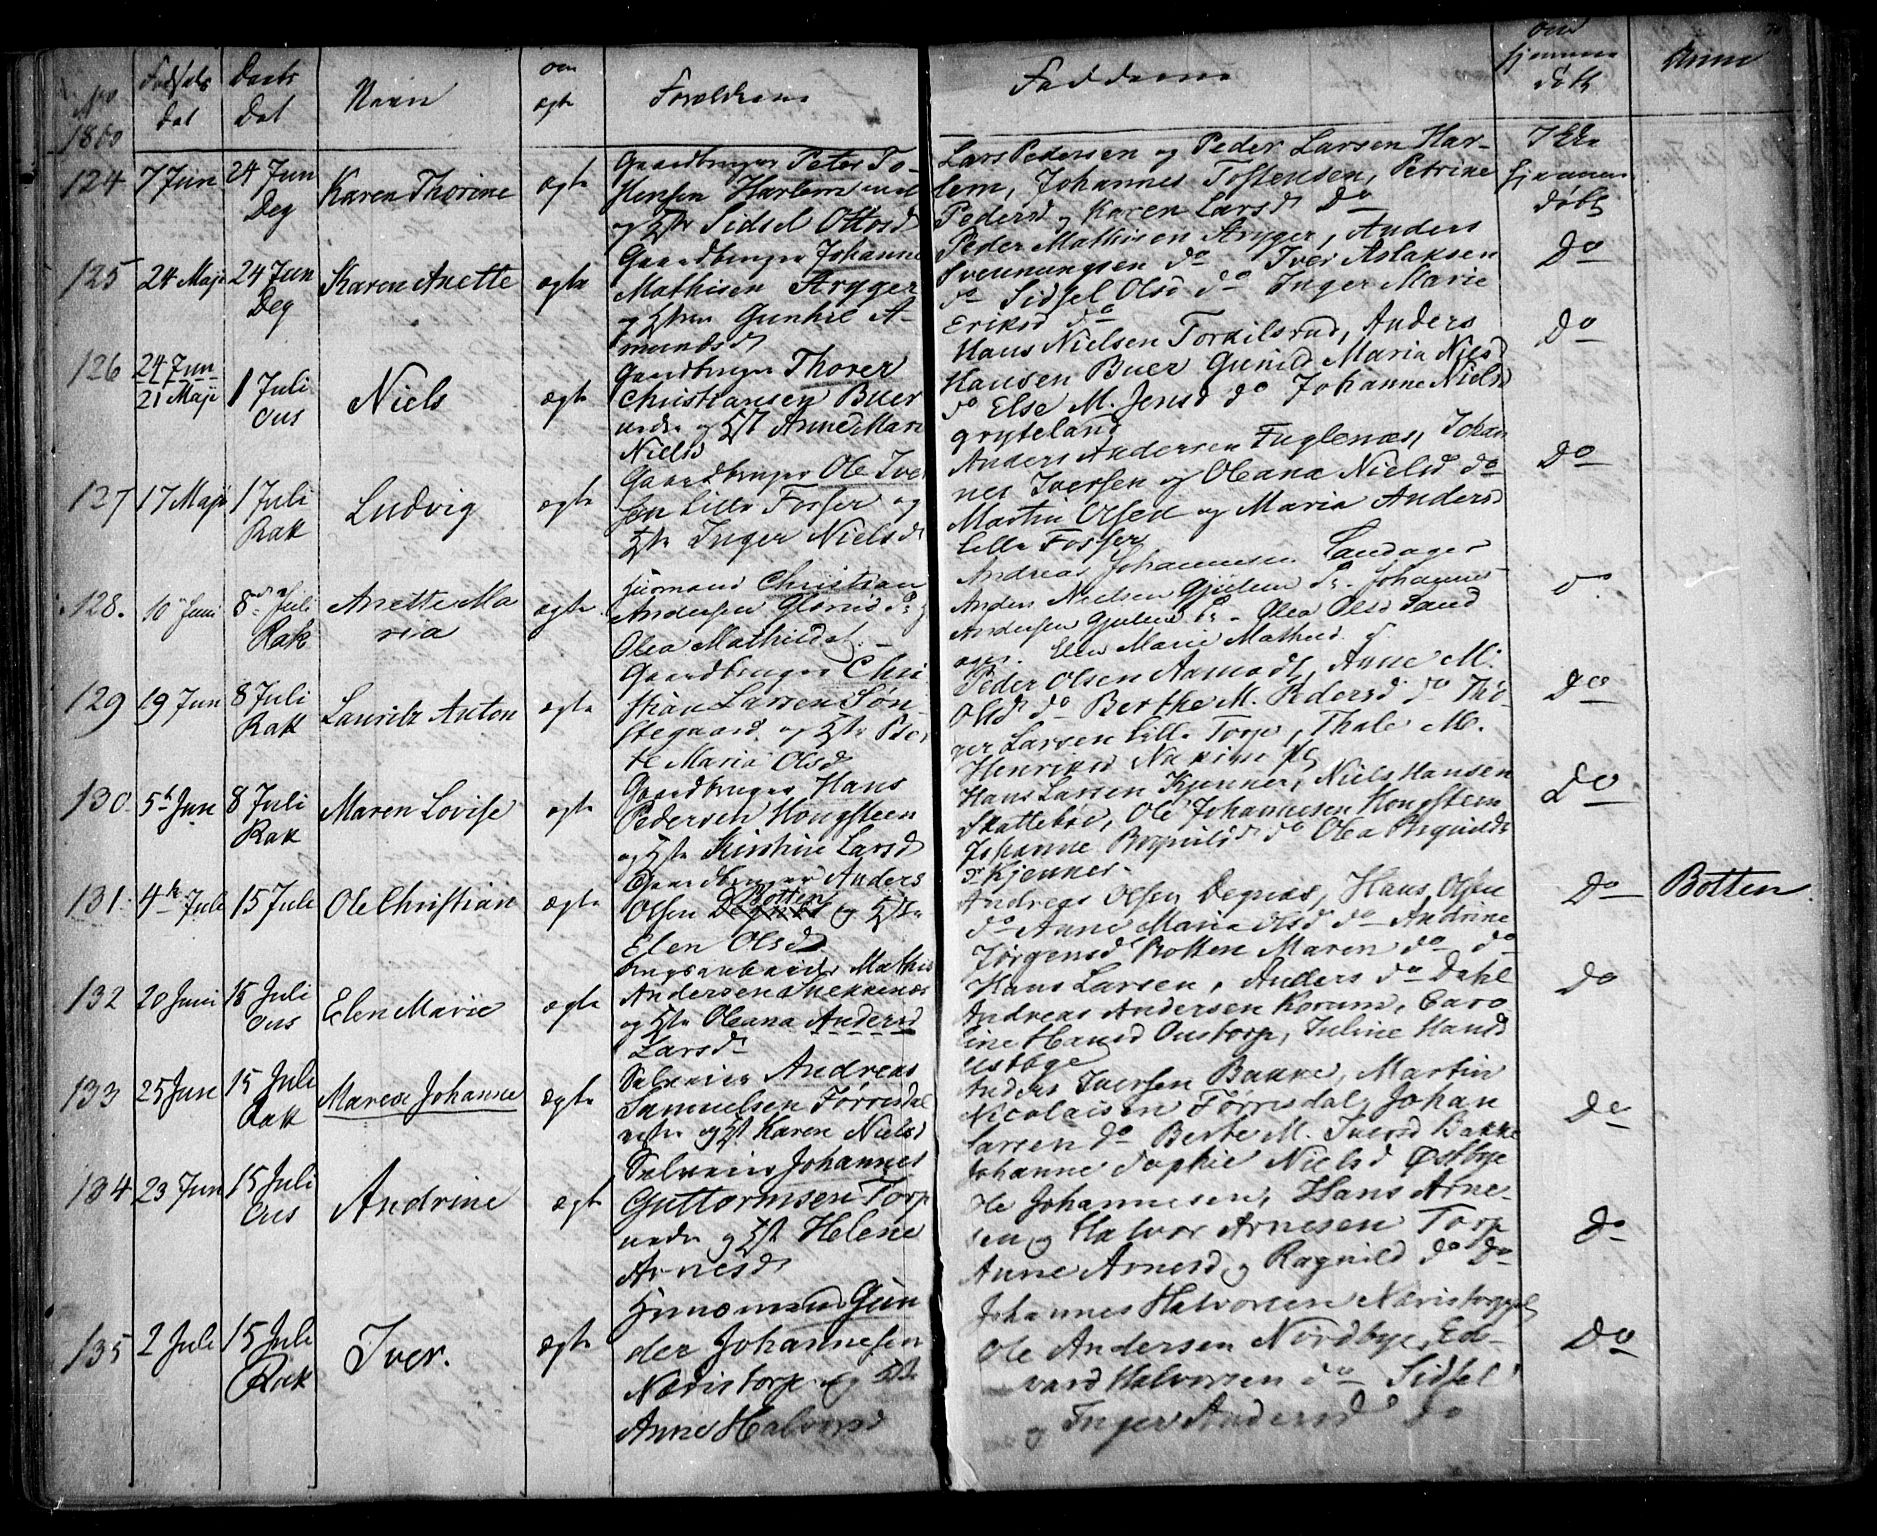 No
1860
Fødsels
dat
Daabs
Dat
Navn
om
ægte
Forældrene
Fadderne
om
hjemme
døbt
Anm
124 7 Jun 24 Jun
Deg
Karen Thorine ægte
Gaardbruger Peter To-
stensen Harlem
og Hstr Sidsel Ottosd
Lars Pedersen og Peder Larsen Har-
lem, Johannes Tostensen, Petrine
Pedersd og Karen Larsd Do
Ikke
hjemme
døbt
125 24 Maj 24 Jun
Deg
Karen Anette ægte
Gaardbruger Johannes
Mathisen Stryger
og Hstru Gunhil A-
mundsd
Peder Mathisen Stryger, Anders
Svennungsen do Iver Aslaksen
do Sidsel Olsd do Inger Marie
Eriksd do
Do
126 24 Jun
21 Maj 1 Juli
Ous
Niels ægte
Gaardbruger Thorer
Christiansen Buer
nedre og Hst Anne Marie
Nielsd
Hans Nielsen Torkilsrud, Anders
Hansen Buer Gunild Maria Nielsd
do Else M. Jensd do Johanne Nielsd
gryteland
Do
127 17 Maj 1 Juli
Rak
Ludvig ægte
Gaardbruger Ole Iver
sen Lille Fosser og
Hst Inger Nielsd
Anders Andersen Fuglenæs, Johan
nes Iversen og Oleana Nielsd do
Martin Olsen og Maria Andersd
Lille Fosser
Do
128. 10 Juni 8 Juli
Rak
Anette Ma
ria
ægte
Huusmand Christian
Andersen Glorud
Olea Mathisd
Andreas Johannesen Sandager
Anders Nielsen Gjølem Johannes
Andersen Gjølem Olea Olsd Sand
ager. Elen Marie Mathisd
129 19 Jun 8 Juli
Rak
Lauritz Anton ægte
Gaardbruger Chri
stian Larsen Søn
stegaard og Hst Ber
te Maria Olsd
Peder Olsen Aamodt, Anne M.
Olsd do Berthe M. Pedersd do Thø-
ger Larsen Lille Torp, Thale M.
Henriksd
Do
130 5t Jun 8 Juli
Rak
Maren Lovise ægte
Gaardbruger Hans
Pedersen Hougsteen
og Hst Kirstine Larsd
Hans Larsen Kjenner, Niels Hansen
Skattebøe, Ole Johannesen Hougsteen
Johanne Rognildsd do Olea Rognildsd
Kjenner.
Do
131 4 Juli 15 Juli Ole Christian ægte
Gaardbruger Anders
Botten
Olsen Degnæs og Hst
Elen Olsd
Andreas Olsen Degnæs, Hans Olsen
do Anne Maria Olsd do Andrine
Jørgensd Botten Maren do do
Do Botten
132 20 Juni 15 Juli
Ous
Elen Marie ægte
Brugsarbeider Mathis
Andersen Snekkenæs
og Hst Oleana Andersd
Larsd
Hans Larsen, Anders do Dahl
Andreas Andersen Korum, Caro
line Hansd Oustorp, Juline Hansd
Østbye
Do
133 25 Jun 15 Juli
Rak
Maren Johanne ægte
Selveier Andreas
Samuelsen Tørrisdal
nedre og Hst Karen Nielsd
Anders Iversen Bakke, Martin
Nicolaisen Tørrisdal, Johan
Larsen do Berte M. Iversd Bakke
Johanne Sophie Nielsd Østbye
Do
134 23 Jun 15 Juli
Ous
Andrine ægte
Selveier Johannes
Guttormsen Torp
nedre og Hst Helene
Arnesd
Ole Johannesen, Hans Arne-
sen og Halvor Arnesen Torp
Anne Arnesd og Ragnild do Do
Do
135 2 Juli 15 Juli
Rak
Iver. ægte
Huusmand Gun
der Johannesen
Næristorp og Hst
Anne Halvorsd
Johannes Halvorsen Næristorp
Ole Andersen Nordbye, Ed-
vard Halvorsen do Sidsel
og Inger Andersd do
Do